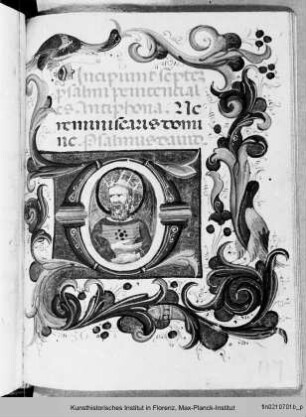 Incipiunt septem
psalmi penitencial
es Antiphona. Ne
reminiscaris domi
ne. Psalmus david.
Kunsthistorisches Institut in Florenz, Max-Planck-Institut
fln0210701b_p